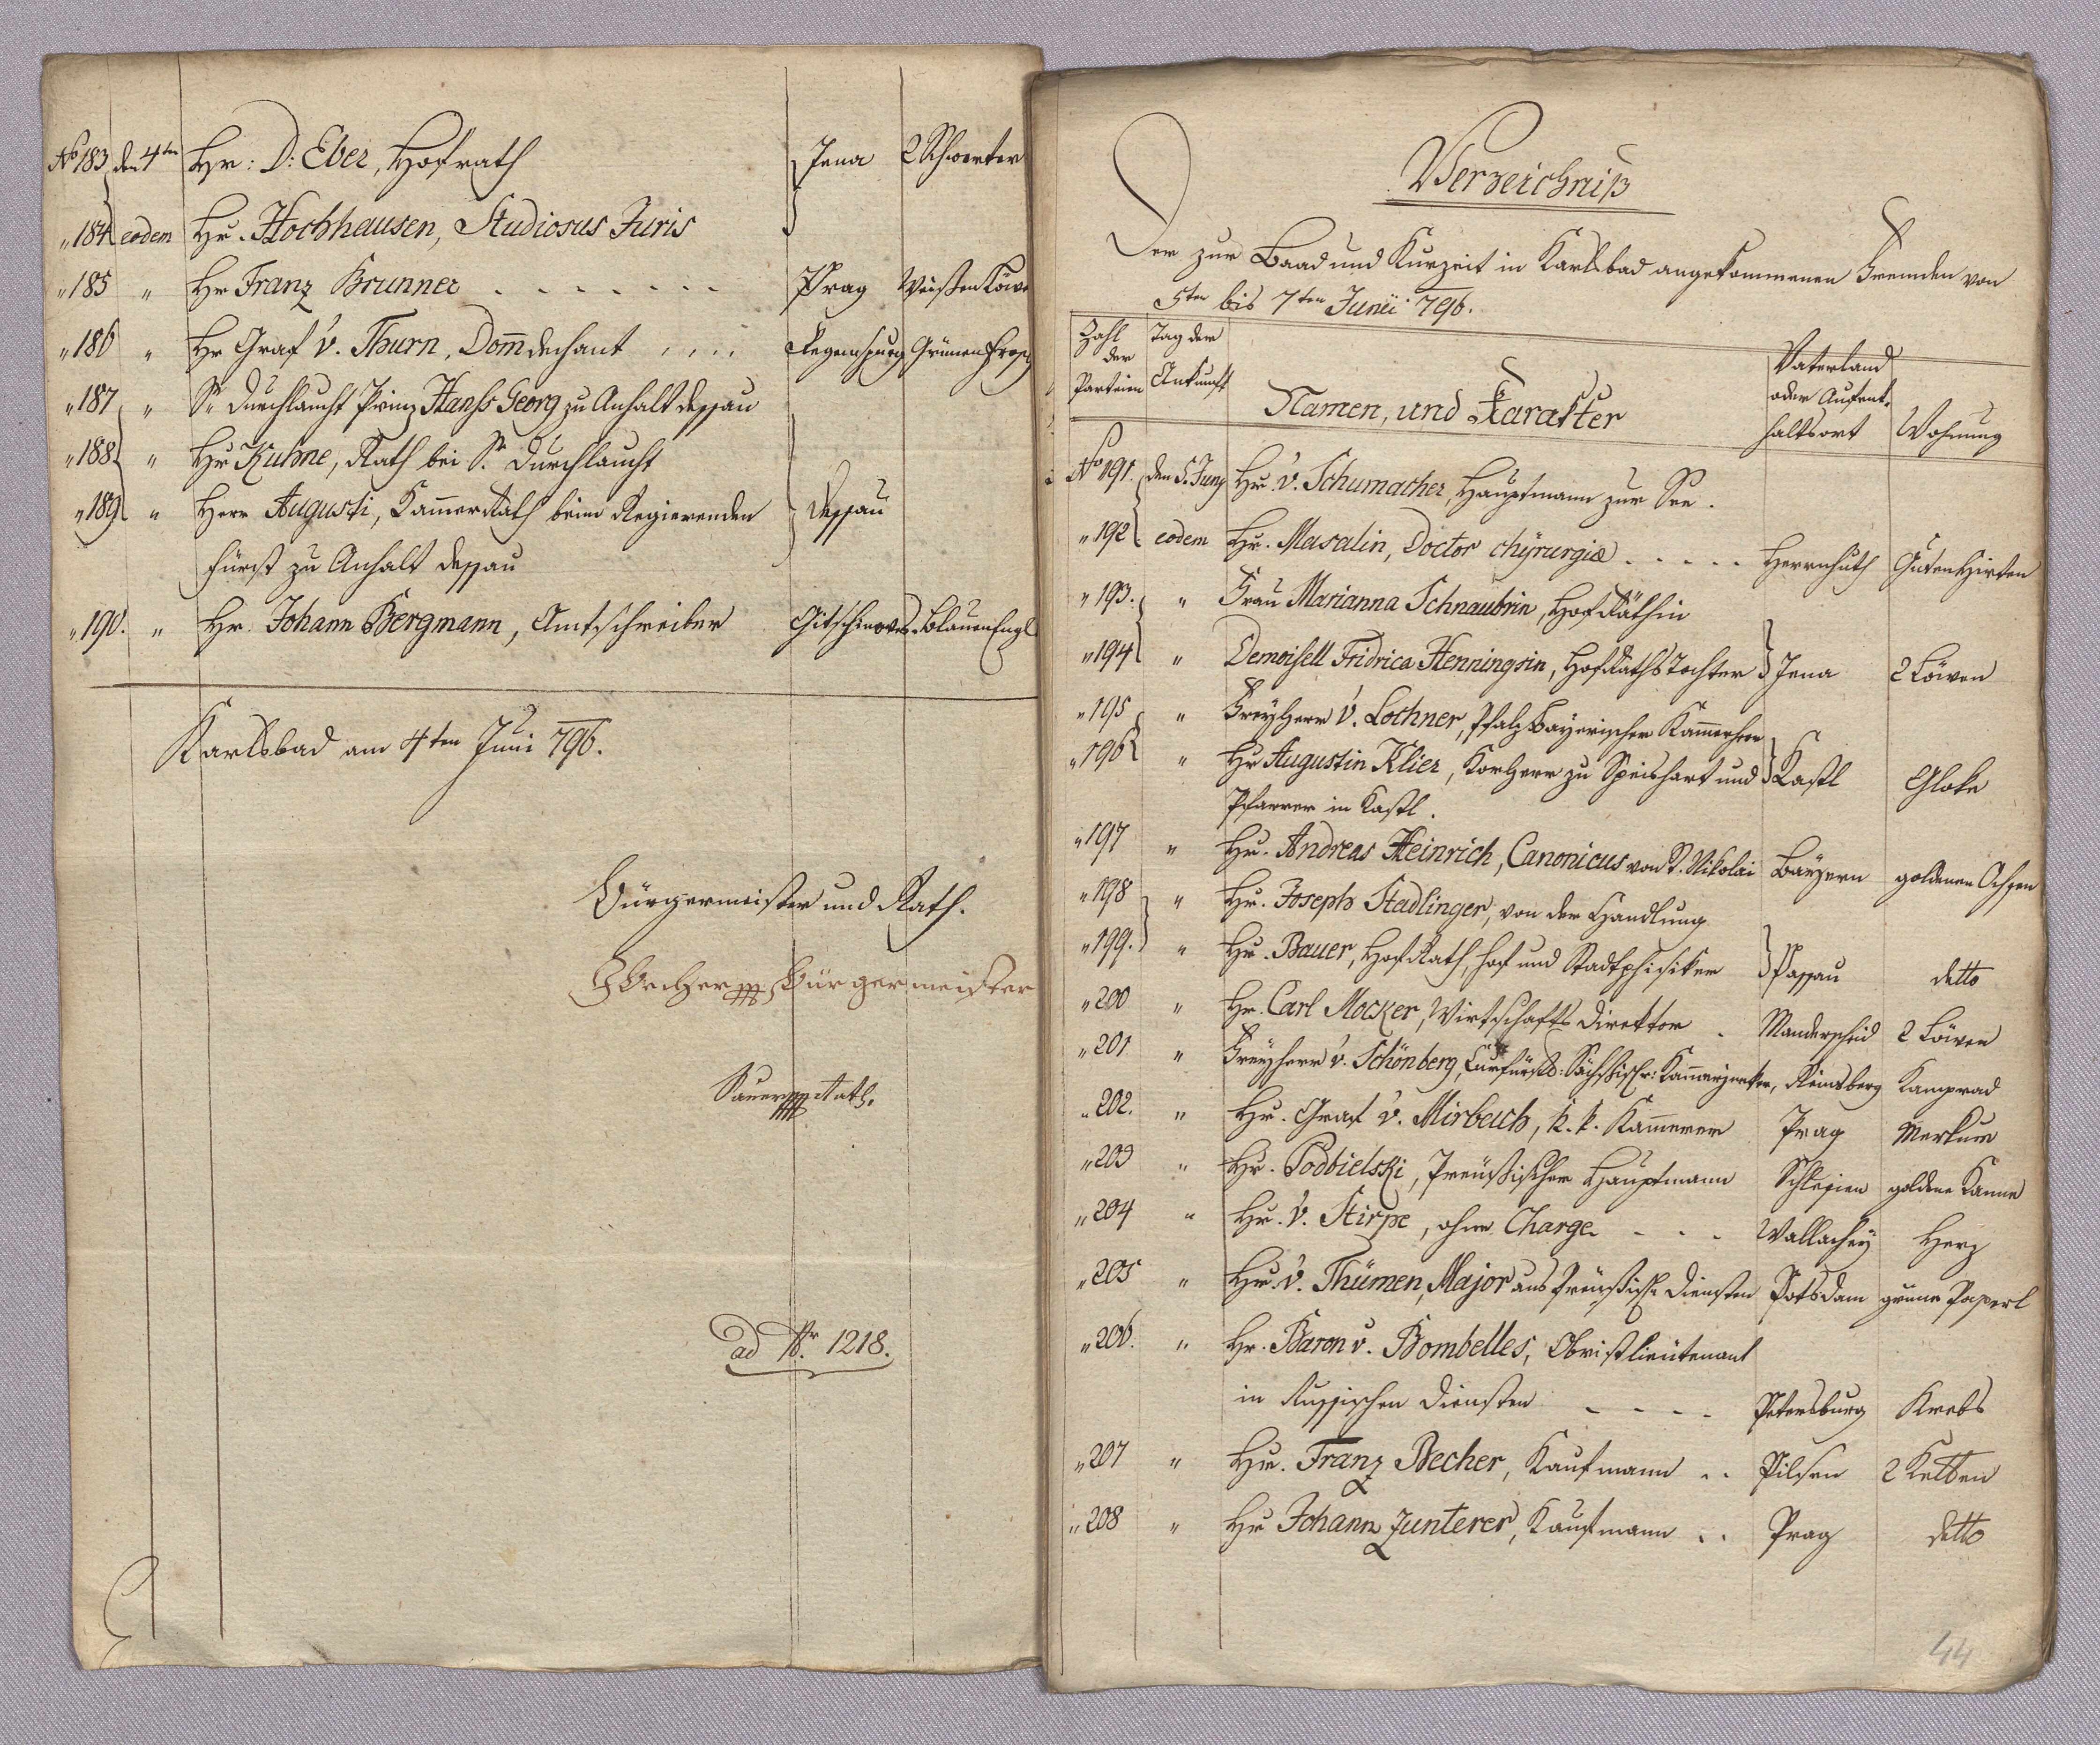 No 183 den 4ten Hr: D: Eber, Hofrath Jena 2 Schwerter
" 184 eodem Hr. Hochhausen, Studiosus Juris
" 185 " Hr Franz Brunner Prag Weißen Löw
" 186 " Hr Graf v. Thurn, Domdechant Regenspurg Grünen Frosch
" 187 " Sr Durchlaucht Prinz Hanss Georg zu Anhalt Dessau
" 188 " Hr Kuhne, Rath bei Sr. Durchlaucht
" 189 " Herr Augusti, Kammer Rath beim Regierenden Dessau
Fürst zu Anhalt Dessau
" 190. " Hr. Johann Bergmann, Amtschreiber Blauen Engl
Karlsbad am 4ten Juni 796.
Bürgermeister und Rath.
Bürgermeister
Rath.
ad Nr. 1218.
Verzeichniß
Der zur Baad und Kurzeit in Karlsbad angekommenen Fremden von
5ten bis 7ten Junii 796.
Zahl der Parteien
Tag der Ankunft
Namen, und Karakter
Vaterland oder Aufent-haltsort
Wohnung
No 191. den 5. Juny Hr. v. Schumacher, Hauptmann zur See.
" 192 eodem Hr. Masalin, Doctor chÿrurgiæ Herrnhuth Guten Hirten
" 193. " Frau Marianna Schnaubrin, Hof Räthin
" 194 " Demoisell Fridrica Henningsin, Hof Raths Tochter Jena 2 Löwen
" 195 " Freyherr v. Lochner, Pfalz Bayerischer Kammerherr
" 196 " Hr Augustin Klier, Korherr zu Speishart und Kastl Gloke
Pfarrer in Kastl.
" 197 " Hr. Andreas Heinrich, Canonicus von St. Nikolai Bayern goldenen Ochsen
" 198 " Hr. Joseph Stadlinger, von der Handlung
" 199. " Hr. Bauer, Hof Rath, Hof und Stadtphisiker Passau detto
" 200 " Hr. Carl Mocker, Wirtschafts Direktor Manderscheid 2 Löwen
" 201 " Freyherr v. Schönberg, Curfürstl: Sächsischr: Kammerjunker, Reinsberg Kamprad
" 202. " Hr. Graf v. Mirbach, k. k. Kammerer Prag Merkur
" 203 " Hr. Podbielski, Preußischer Hauptmann Schlesien goldene Kanne
" 204 " Hr. v. Stirpe, ohne Charge Wallachey Herz
" 205 " Hr. v. Thümen, Major aus Preußisch Diensten Potsdam grüne Paperl
" 206. " Hr. Baron v. Bombelles, Obristlieutenant
in Russischen Diensten Petersburg Krebs
" 207 " Hr. Franz Becher, Kaufmann Pilsen 2 Ketten
" 208 " Hr Johann Zunterer, Kaufmann Prag detto
44